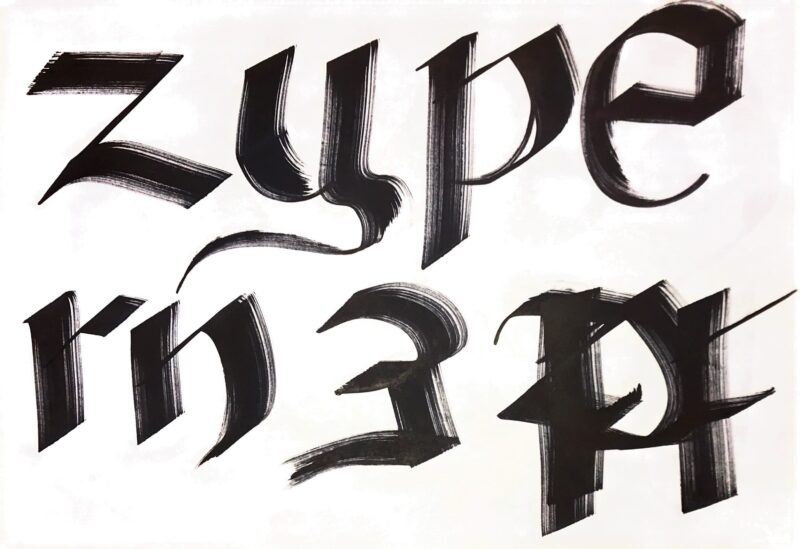 zype
rn3